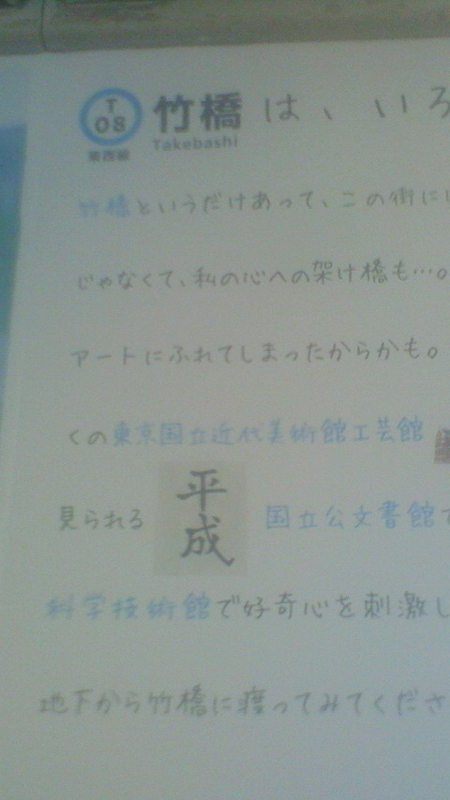 T
08
竹橋は、いろ
Takebashi
東西線
竹橋というだけあって、この街に
じゃなくて、私の心への架け橋も…。
アートにふれてしまったからかも。
くの東京国立近代美術館工芸館
見られる 平成 国立公文書館で
科学技術館で好奇心を刺激し
地下から竹橋に渡ってみてくださ